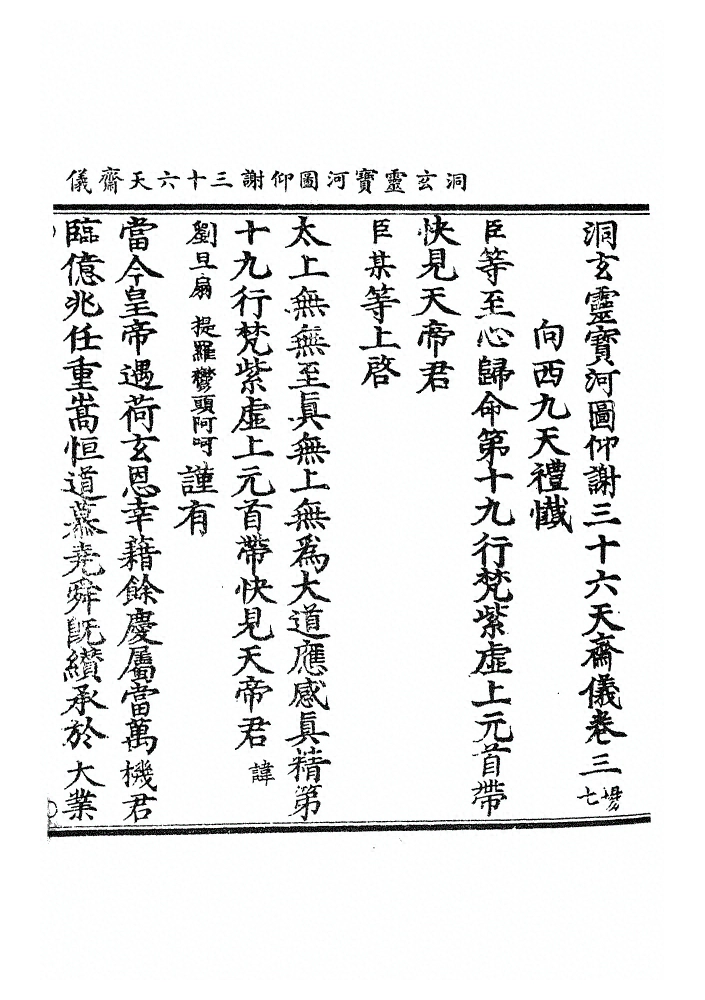 洞玄靈寶河圖仰謝三十六天齋儀
洞玄靈寶河圖仰謝三十六天齋儀卷三 七
向西九天禮懺
臣等至心歸命第十九行梵紫虛上元首帶
快見天帝君
臣某等上啓
太上無無至眞無上無爲大道應感眞精第
十九行梵紫虛上元首帶快見天帝君 諱
劉旦扇 提羅欎頭阿呵 謹有
當今皇帝遇荷玄恩幸藉餘慶屬當萬機君
臨億兆任重嵩恒道慕堯舜旣纘承於大業